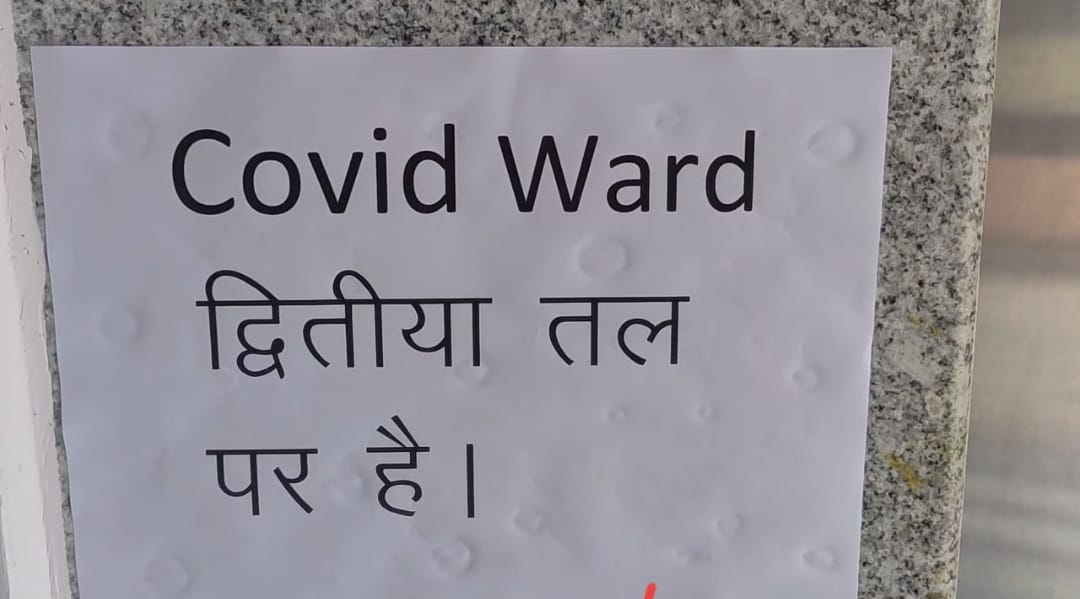 Covid Ward
द्वितीया तल
पर है।